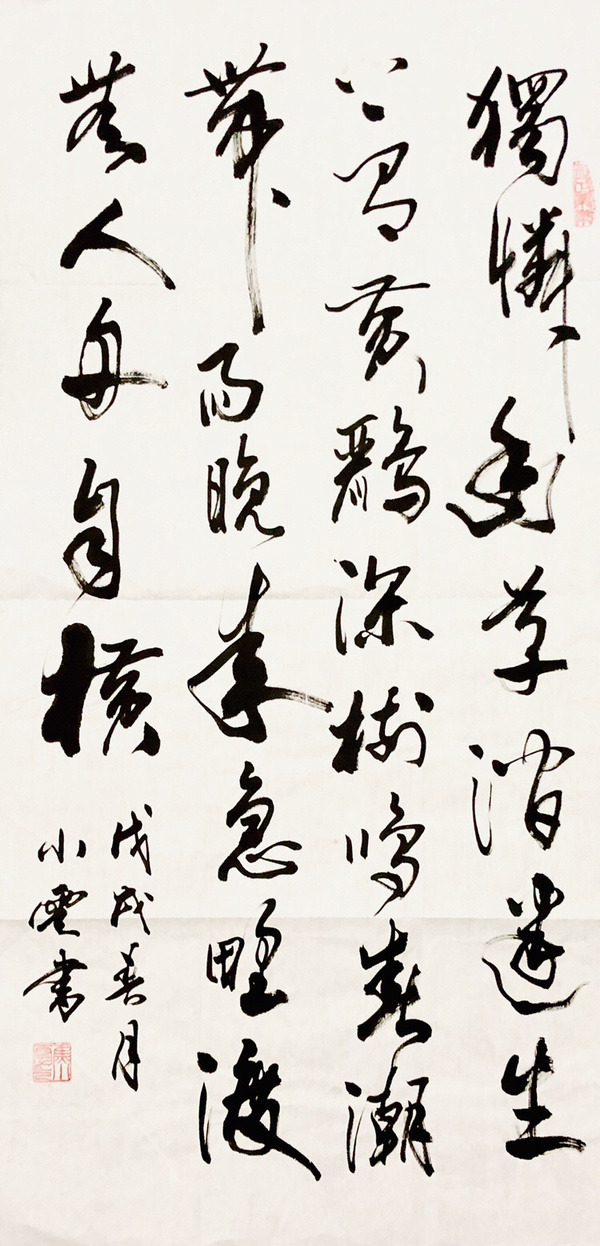 獨憐幽草澗邊生
上有黃鸝深樹鳴春潮
帶雨晚來急野渡
無人舟自橫
戊戌春月
小雲書